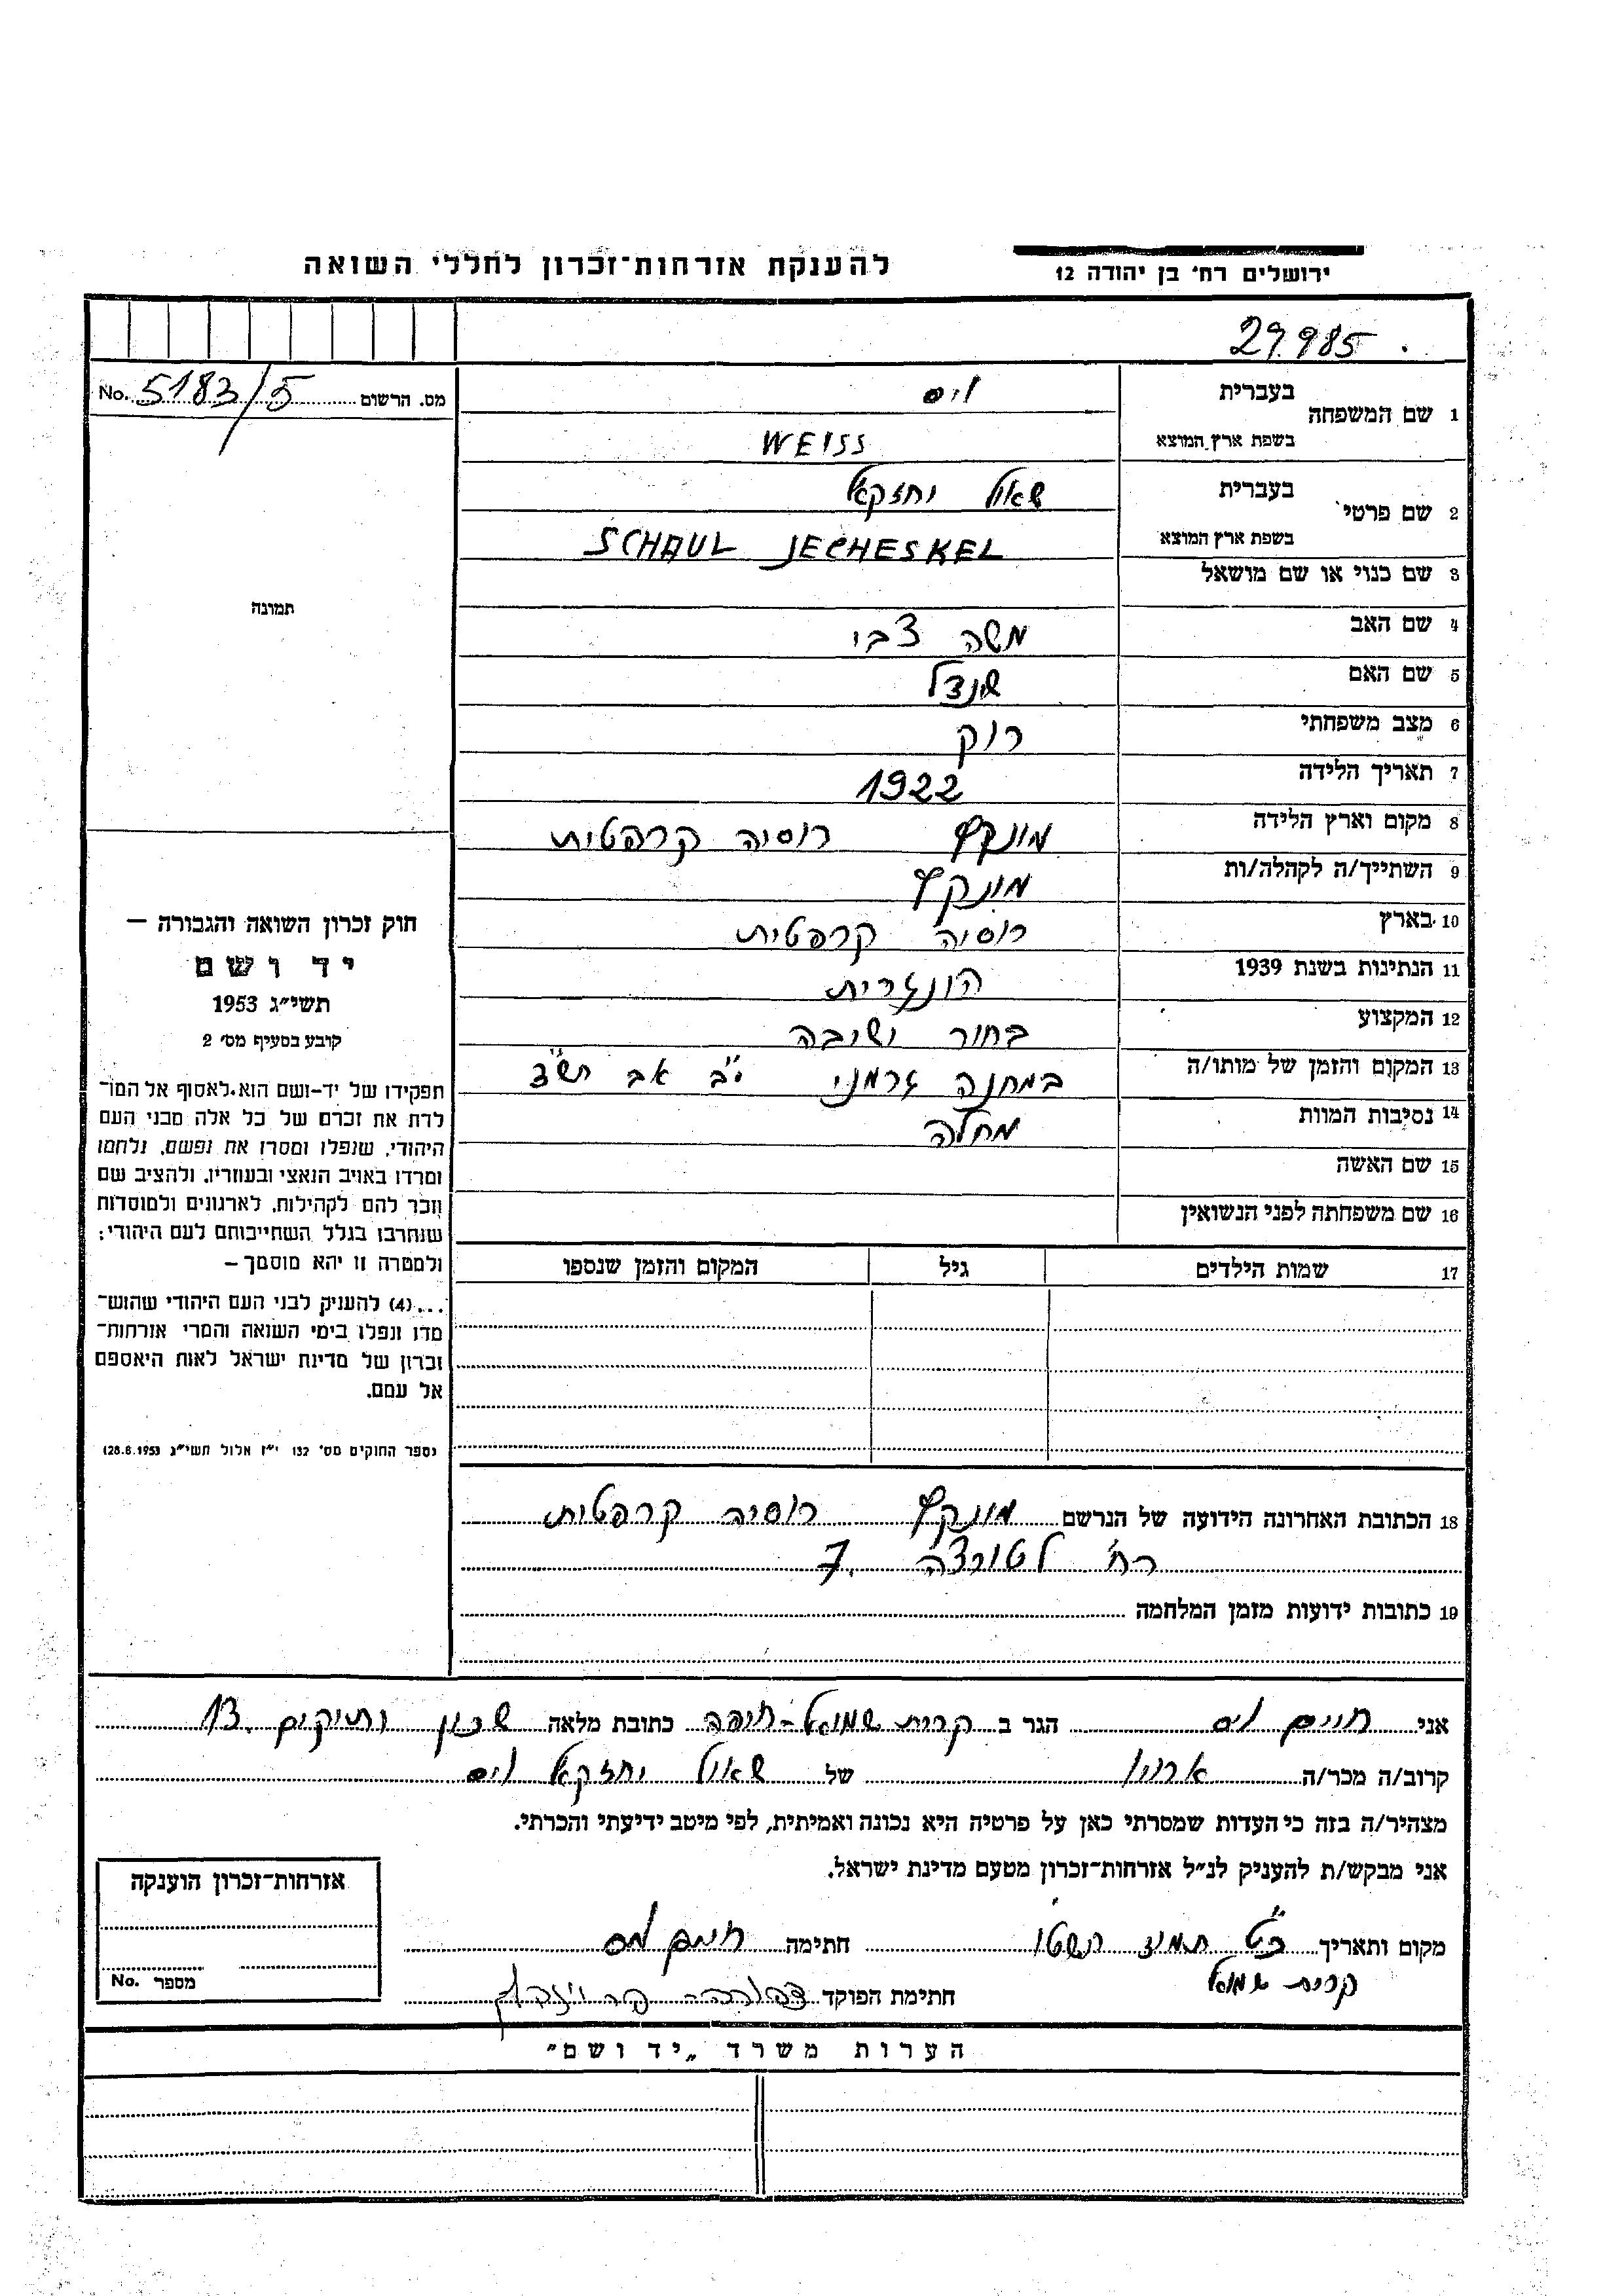 להענקת אזרחות־זכרון לחללי השואה
ירושלים רח׳ בן יהודה 12
29.985
מס. הרשום No. 5183/5
1 שם המשפחה
בעברית וייס
בשפת ארץ המוצא WEISS
2 שם פרטי
בעברית שאול יחזקאל
בשפת ארץ המוצא SCHAUL JECHESKEL
3 שם כנוי או שם מושאל
4 שם האב משה צבי
5 שם האם שינדל
6 מצב משפחתי רוק
7 תאריך הלידה 1922
8 מקום וארץ הלידה מונקץ רוסיה קרפטית
9 השתייך/ה לקהלה/ות מונקץ
10 בארץ רוסיה קרפטית
11 הנתינות בשנת 1939 הונגרית
12 המקצוע בחור ישיבה
13 המקום והזמן של מותו/ה במחנה גרמני י״ב אב תש״ד
14 נסיבות המוות מחלה
15 שם האשה
16 שם משפחתה לפני הנשואין
17 שמות הילדים גיל המקום והזמן שנספו
תמונה
חוק זכרון השואה והגבורה –
יד ושם
תשי״ג 1953
קובע בסעיף מס׳ 2
תפקידו של יד-ושם הוא לאסוף אל המו־
לדת את זכרם של כל אלה מבני העם
היהודי, שנפלו ומסרו את נפשם, נלחמו
ומרדו באויב הנאצי ובעוזריו, ולהציב שם
וזכר להם לקהילות, לארגונים ולמוסדות
שנחרבו בגלל השתייכותם לעם היהודי;
ולמטרה זו יהא מוסמך –
...(4) להעניק לבני העם היהודי שהוש־
מדו ונפלו בימי השואה והמרי אזרחות־
זכרון של מדינת ישראל לאות היאספם
אל עמם.
(ספר החוקים מס׳ 132 י״ז אלול תשי״ג 28.8.1953)
18 הכתובת האחרונה הידועה של הנרשם מונקץ רוסיה קרפטית
רח׳ לטורצה 7.
19 כתובות ידועות מזמן המלחמה
אני חיים וייס הגר ב קרית שמואל-חיפה כתובת מלאה שכון ותיקים 13
קרוב/ה מכר/ה אחיו של שאול יחזקאל וייס
מצהיר/ה בזה כי העדות שמסרתי כאן על פרטיה היא נכונה ואמיתית, לפי מיטב ידיעתי והכרתי.
אני מבקש/ת להעניק לנ״ל אזרחות־זכרון מטעם מדינת ישראל.
מקום ותאריך כ״ט תמוז תשטו חתימה חיים וייס
קרית שמואל
חתימת הפוקד
אזרחות־זכרון הוענקה
מספר No.
הערות משרד „יד ושם״